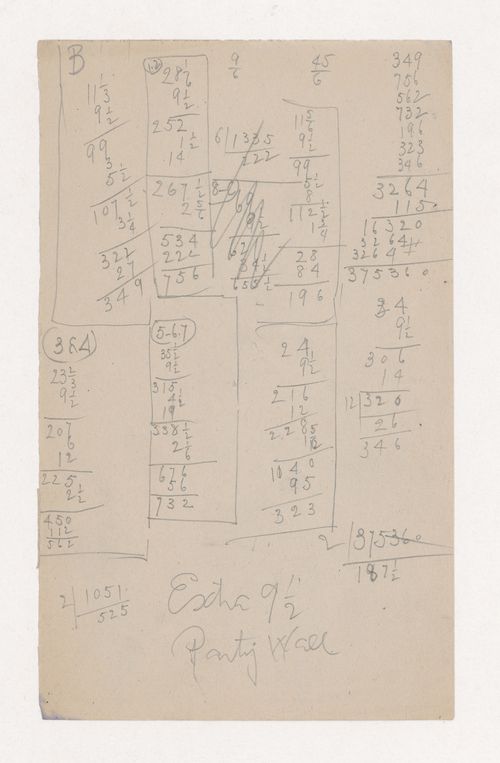 B
11 1/3
9 1/2
99
3
5 1/2
107 1/2
3 1/4
322
27
349
1.2
28 1/6
9 1/2
252
1 1/2
14
267 1/2
2 5/6
534
222
756
9/6
6 1335
222
8-9
45/6
11 5/6
9 1/2
99
5 1/2
8
112 1/2
1 3/4
28
84
196
349
756
562
732
196
323
346
3264
115
16320
3264
3264
375360
3&4
23 2/3
9 1/2
207
6
12
225
2 1/2
450
112
562
5-6-7
35 1/2
9 1/2
315
4 1/2
19
338 1/2
2 1/6
676
56
732
24
9 1/2
216
12
228
1040
95
323
34
9 1/2
306
14
12 320
26
346
2 375360
187 1/2
2 1051
525
Extra 9 1/2
Party Wall